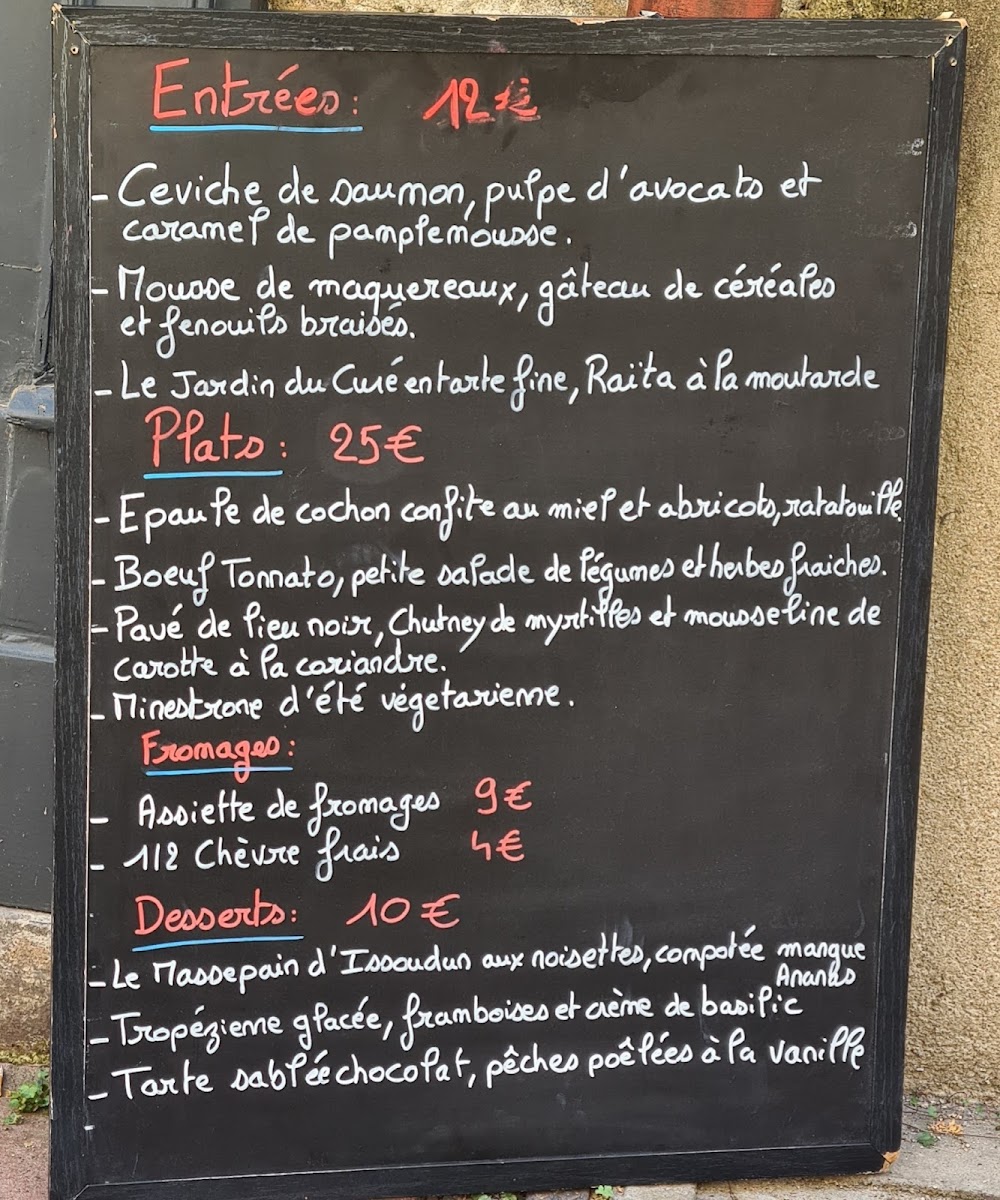 Entrées: 12€
- Ceviche de saumon, pulpe d'avocats et
caramel de pamplemousse.
- Mousse de maquereaux, gâteau de céréales
et fenouils braisés.
- Le Jardin du Curé en tarte fine, Raïta à la moutarde
Plats: 25€
- Epaule de cochon confite au miel et abricots, ratatouille.
- Boeuf Tonnato, petite salade de légumes et herbes fraiches.
- Pavé de lieu noir, Chutney de myrtilles et mousseline de
carotte à la coriandre.
- Minestrone d'été végetarienne.
Fromages:
- Assiette de fromages 9€
- 1/2 Chèvre frais 4€
Desserts: 10€
- Le Massepain d'Issoudun aux noisettes, compotée mangue
Ananas
- Tropézienne glacée, framboises et crème de basilic
- Tarte sablée chocolat, pêches poêlées à la vanille
-